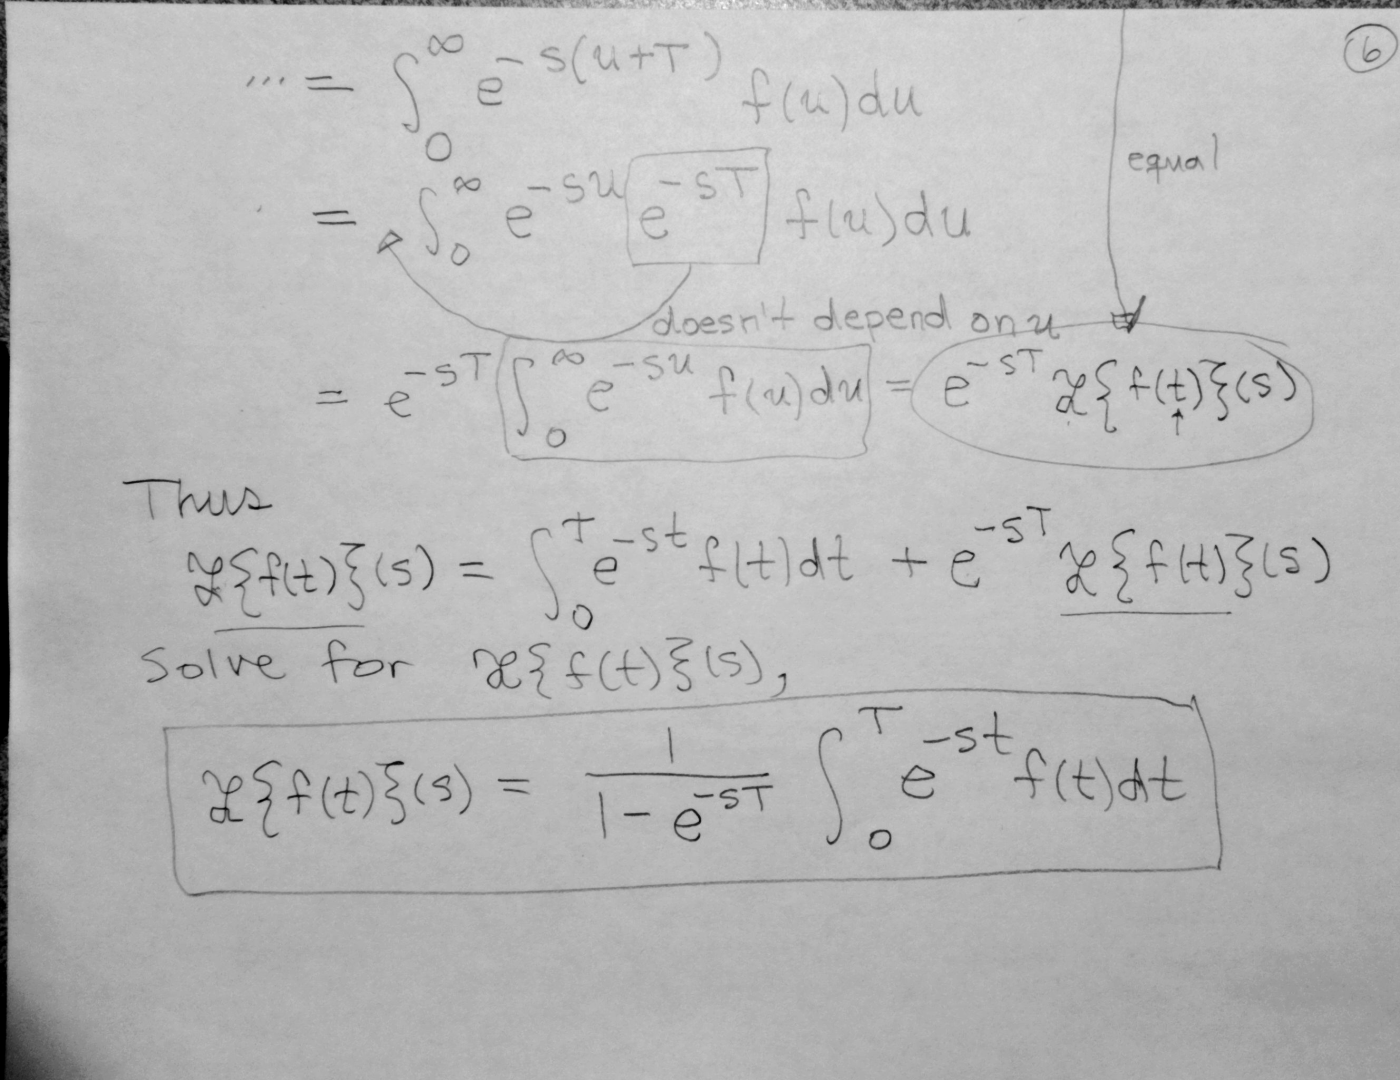 ⑥
... = ∫₀^∞ e^{-s(u+T)} f(u)du
equal
= ∫₀^∞ e^{-su} e^{-sT} f(u)du
doesn't depend on u
= e^{-sT} ∫₀^∞ e^{-su} f(u)du = e^{-sT} ℒ{f(t)}(s)
Thus
ℒ{f(t)}(s) = ∫₀^T e^{-st} f(t)dt + e^{-sT} ℒ{f(t)}(s)
Solve for ℒ{f(t)}(s),
ℒ{f(t)}(s) = \frac{1}{1-e^{-sT}} ∫₀^T e^{-st} f(t)dt